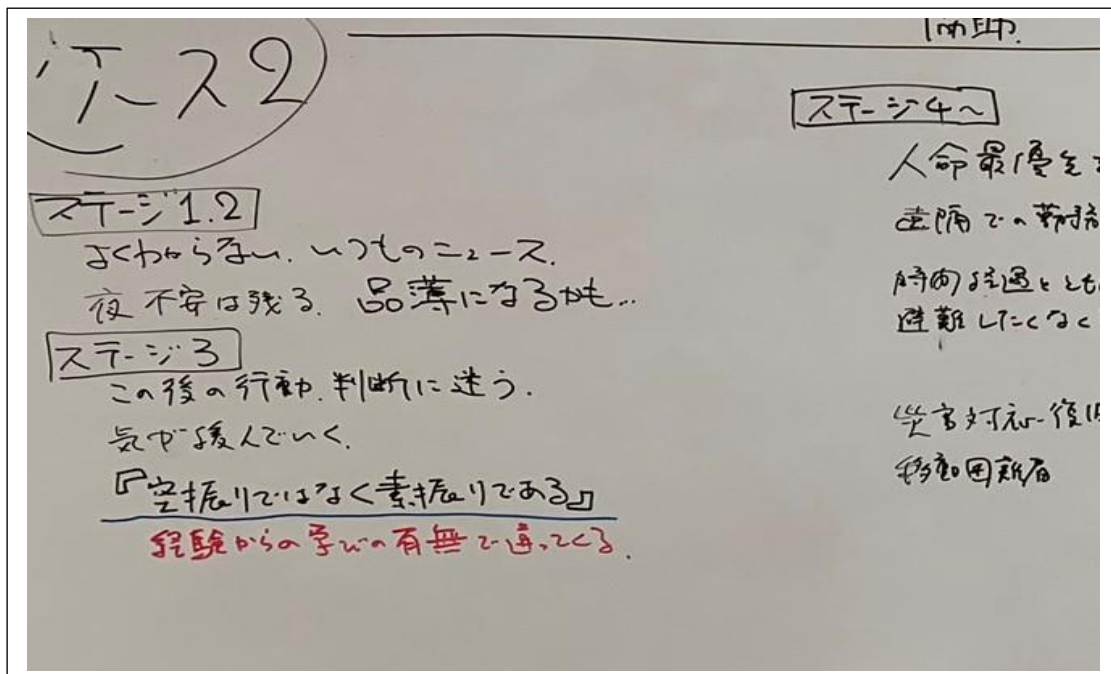 ケース2
ステージ1.2
よくわからない.いつものニュース.
夜 不安は残る. 品薄になるかも…
ステージ3
この後の行動.判断に迷う.
気が緩んでいく.
『空振りではなく素振りである』
経験からの学びの有無で違ってくる.
協助.
ステージ4~
人命最優先
遠隔での勤務
時間経過ととも
避難したくなく
災害対応-復旧
移動困難者